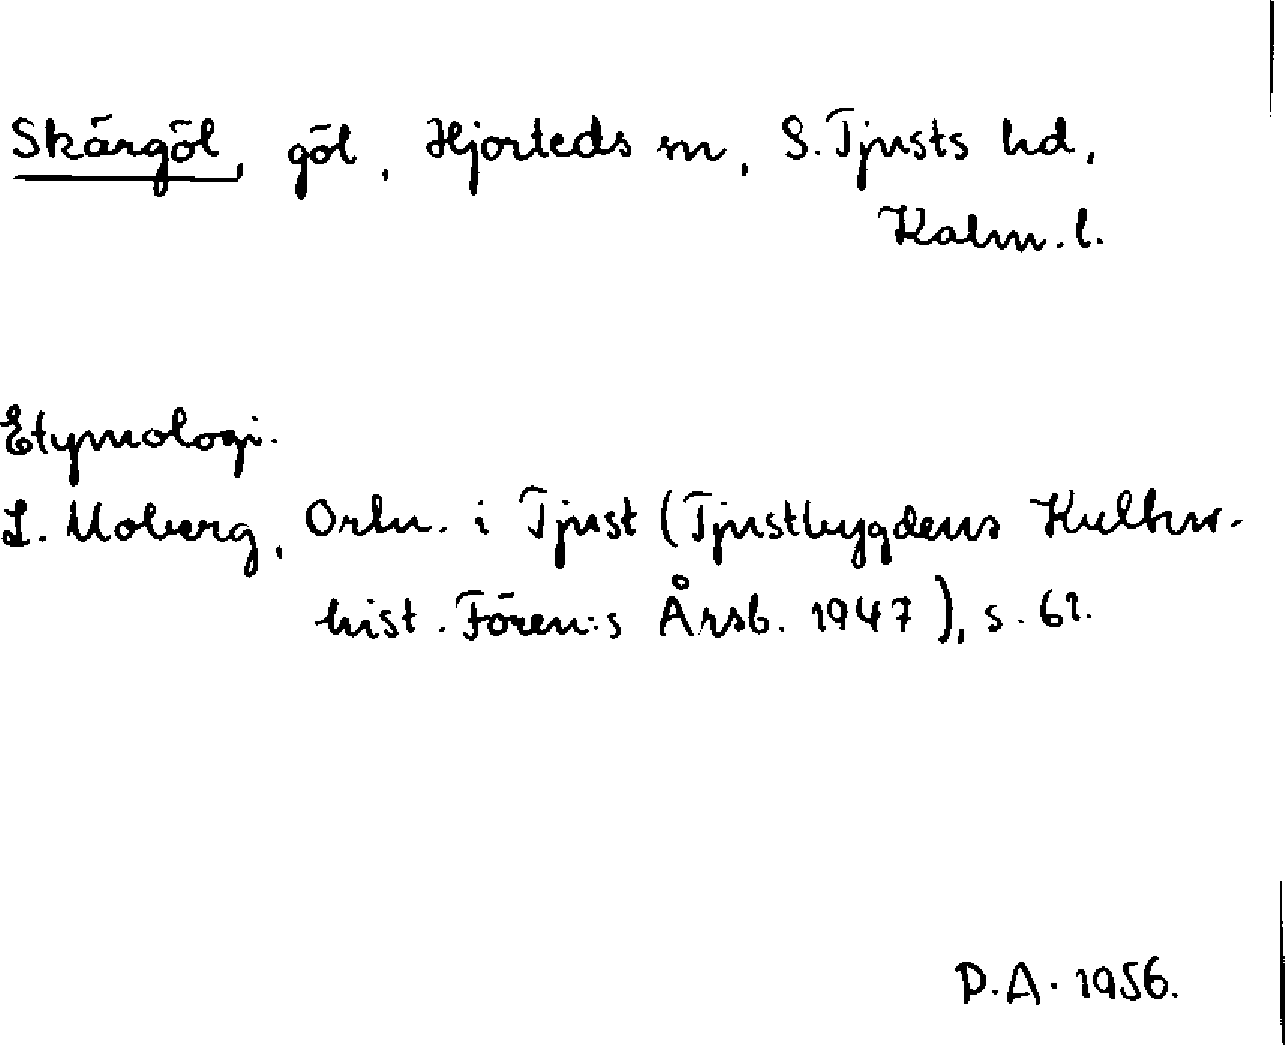 Skärgöl, göl, Hjorteds sn, S. Tjusts hd,
Kalm. l.
Etymologi.
L. Moberg, Ortn. i Tjust (Tjustbygdens Kultur-
hist. Fören:s Årsb. 1947), s. 61.
D.A. 1956.